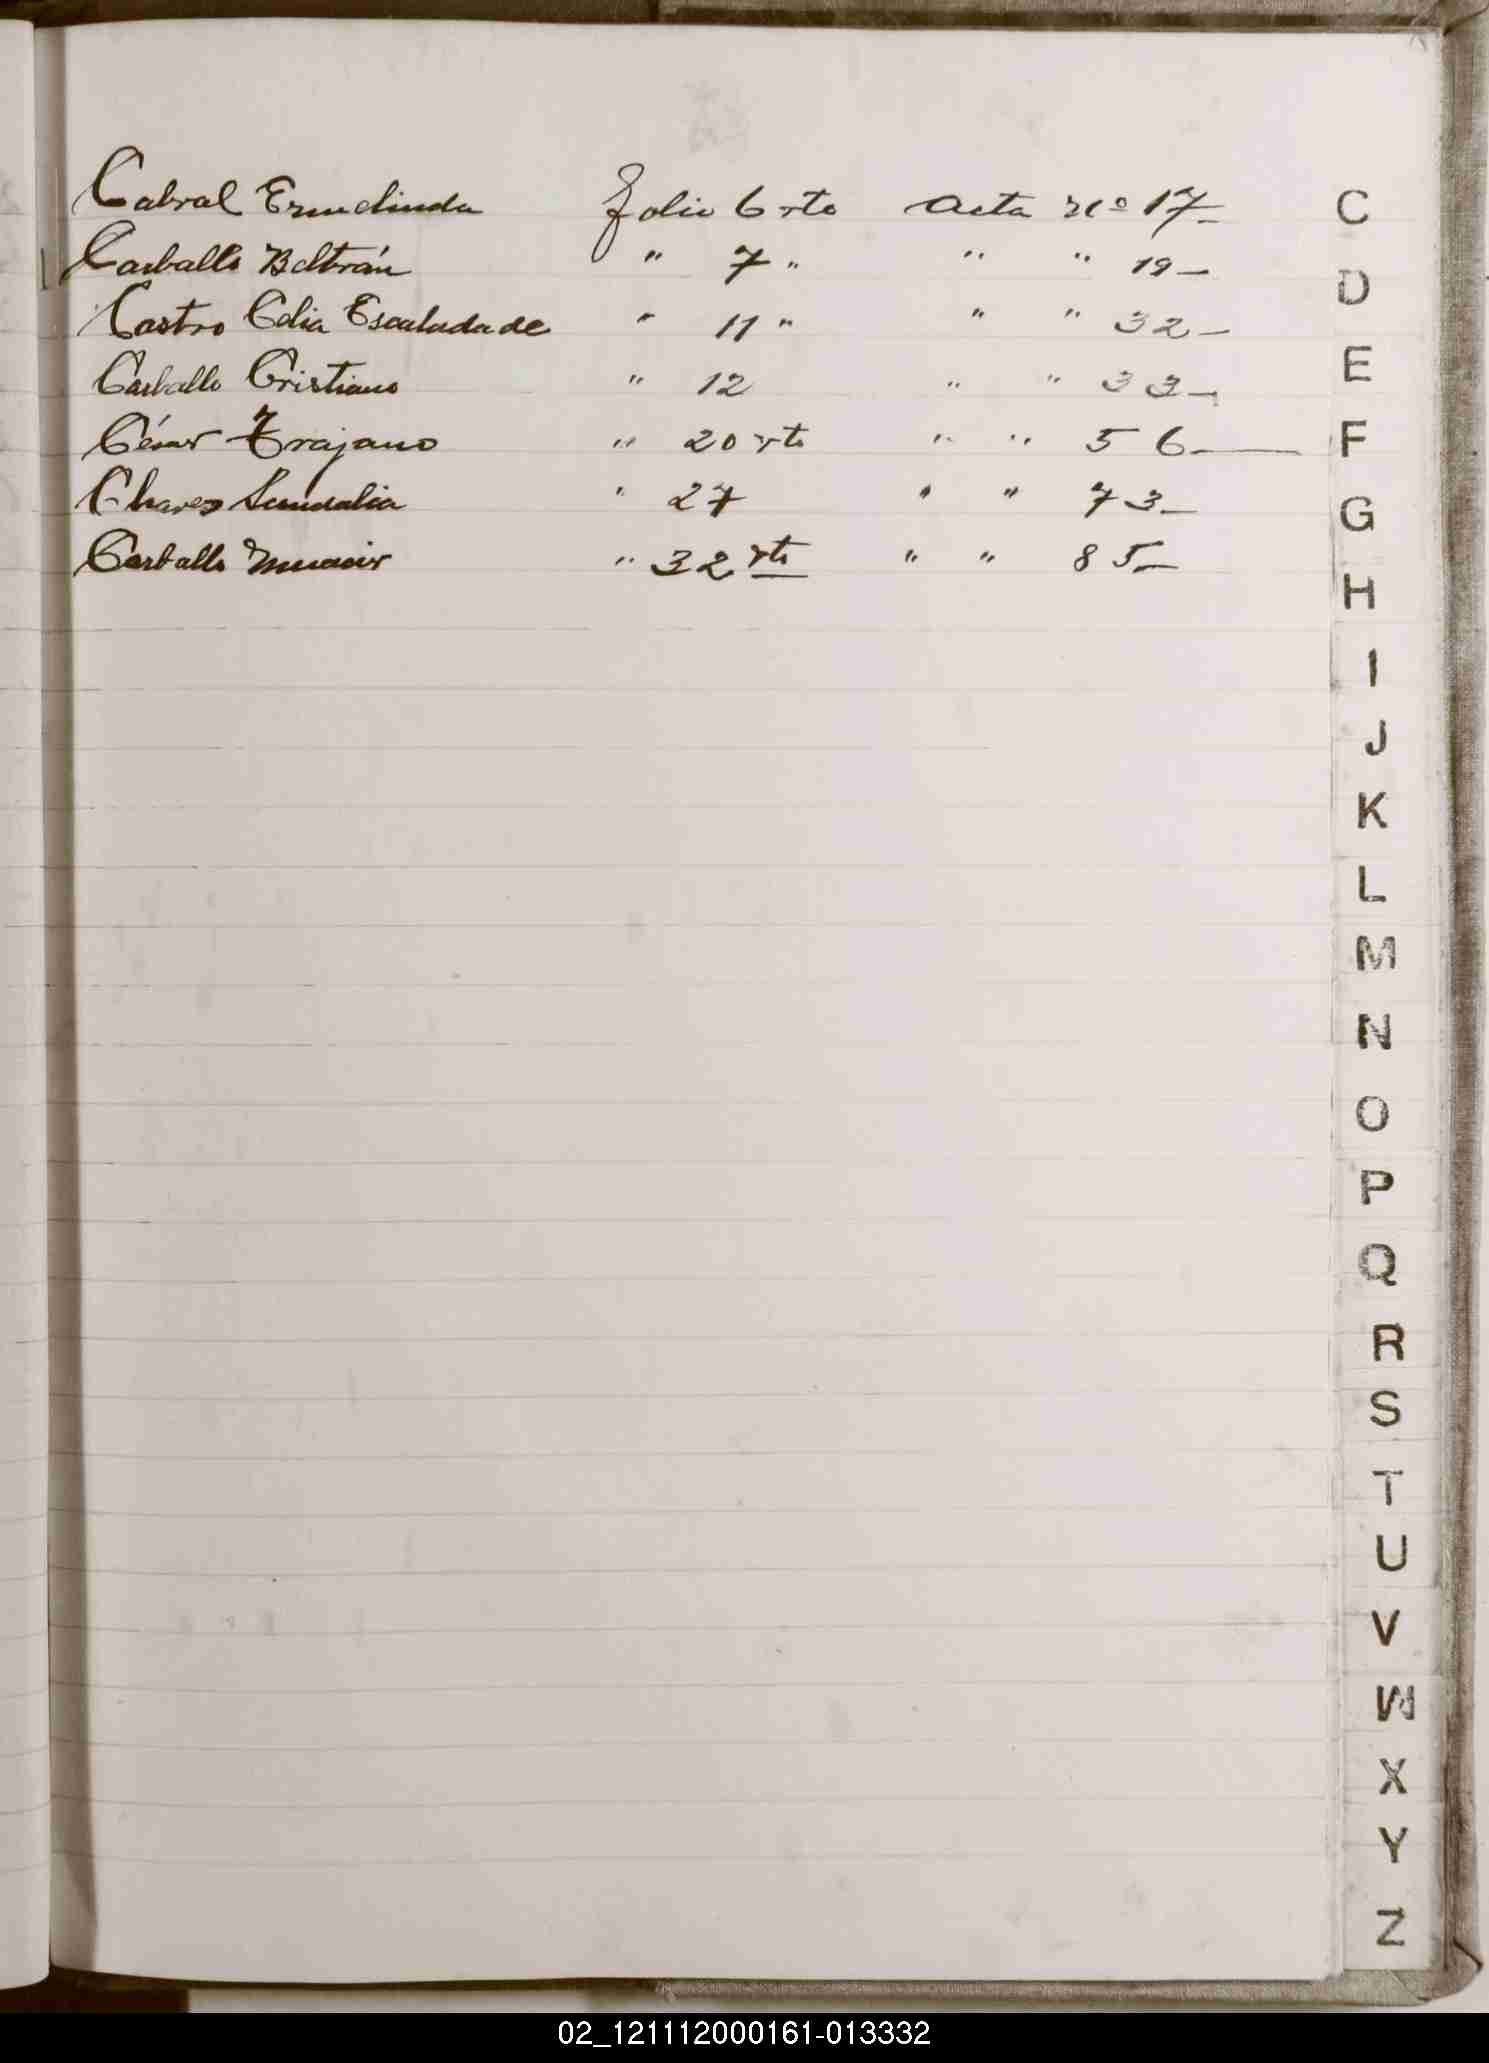 Cabral Ermelinda folio 6 vto Acta nº 17 C
Carballo Beltrán " 7 " " " 19 D
Castro Celia Escalada de " 11 " " " 32
Carballo Cristiano " 12 " " 33 E
César Trajano " 20 vto " " 56 F
Chaves " 27 " " 73 G
Carballo " 32 vto " " 85
H
I
J
K
L
M
N
O
P
Q
R
S
T
U
V
W
X
Y
Z
02_121112000161-013332